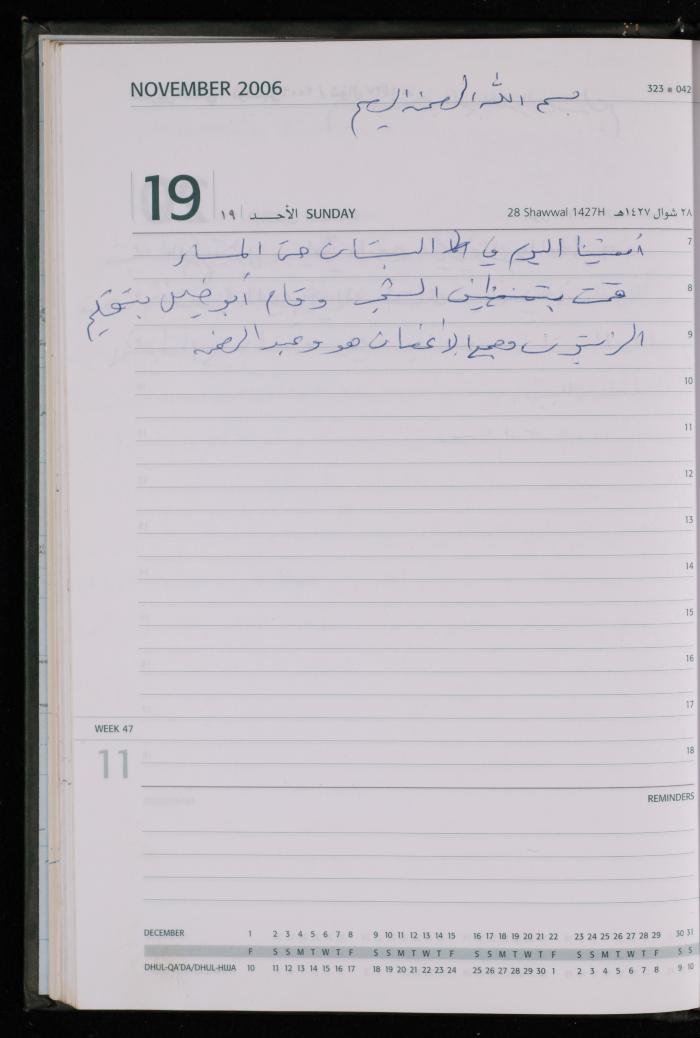 NOVEMBER 2006
بسم الله الرحمن الرحيم
323 ■ 042
19
١٩ الأحـــد SUNDAY
28 Shawwal 1427H ٢٨ شوال ١٤٢٧هـ
7
أمضينا اليوم في البستان حتى المساء
8
قمت بتنظيف الشجر وقام أبو خليل بتقليم
9
الزيتون وجمع الأغصان هو وعبد الرحمن
10
11
12
13
14
15
16
17
WEEK 47
18
11
REMINDERS
DECEMBER 1 2 3 4 5 6 7 8 9 10 11 12 13 14 15 16 17 18 19 20 21 22 23 24 25 26 27 28 29 30 31
F S S M T W T F S S M T W T F S S M T W T F S S M T W T F S S
DHUL-QA'DA/DHUL-HIJJA 10 11 12 13 14 15 16 17 18 19 20 21 22 23 24 25 26 27 28 29 30 1 2 3 4 5 6 7 8 9 10